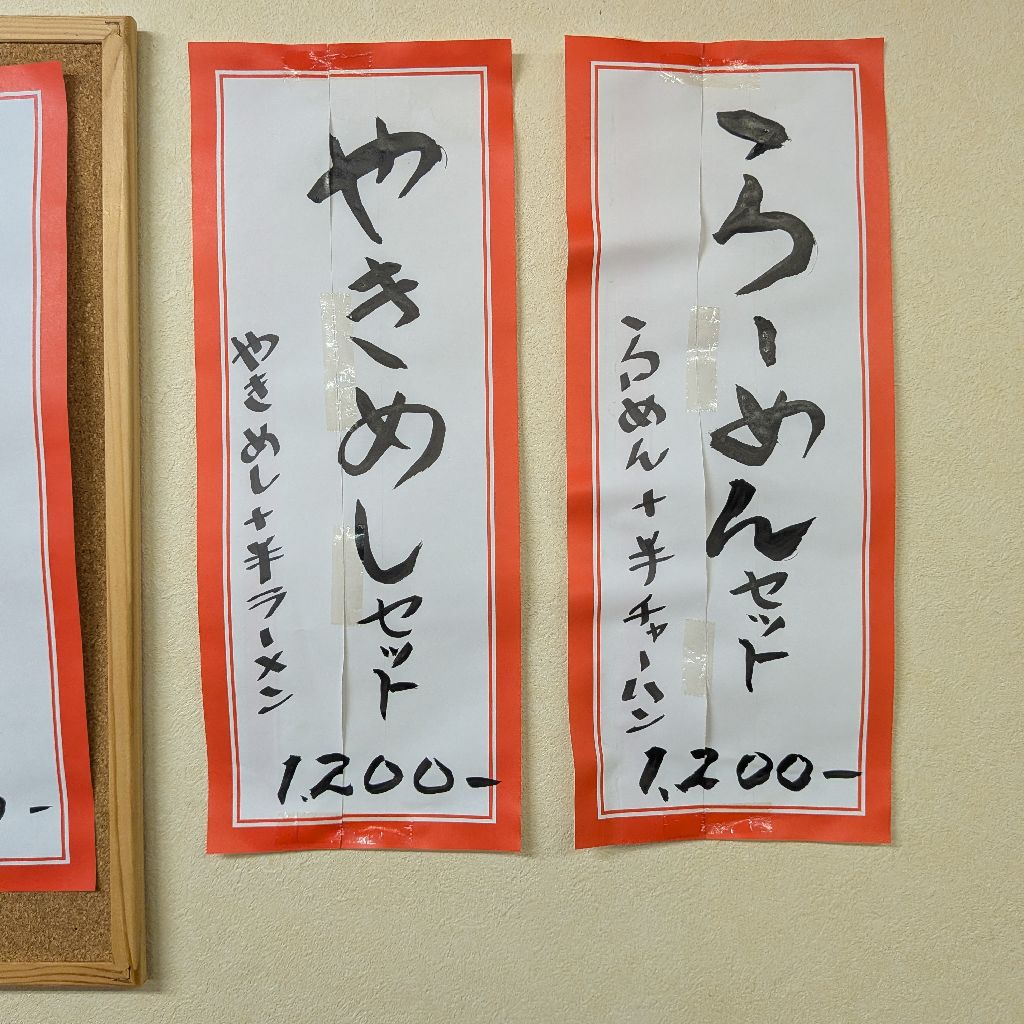 らーめんセット
らーめん+半チャーハン
1,200-
やきめしセット
やきめし+半ラーメン
1,200-